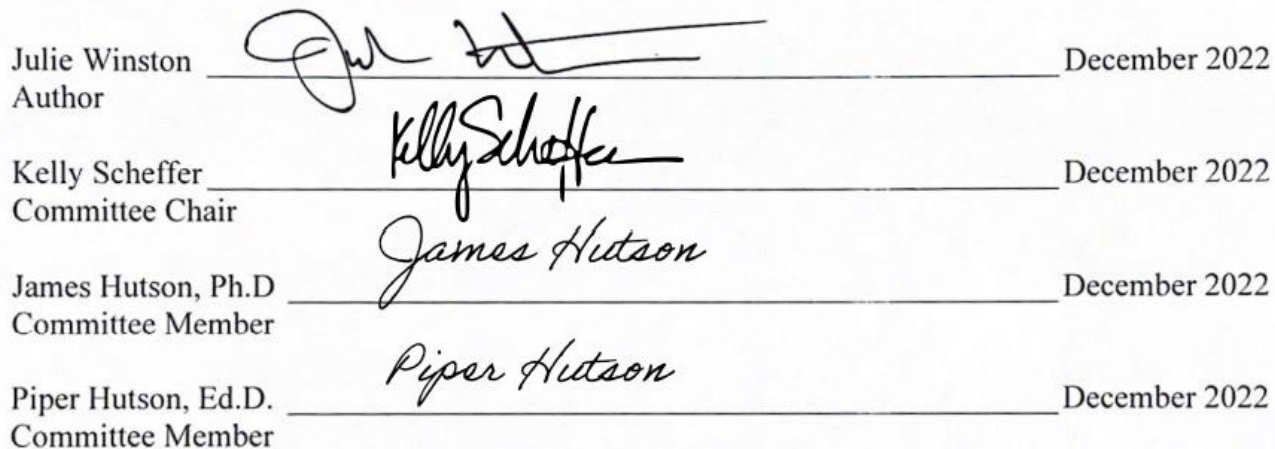 Julie Winston December 2022
Author
Kelly Scheffer Kelly Scheffer December 2022
Committee Chair
James Hutson
James Hutson, Ph.D December 2022
Committee Member
Piper Hutson
Piper Hutson, Ed.D. December 2022
Committee Member